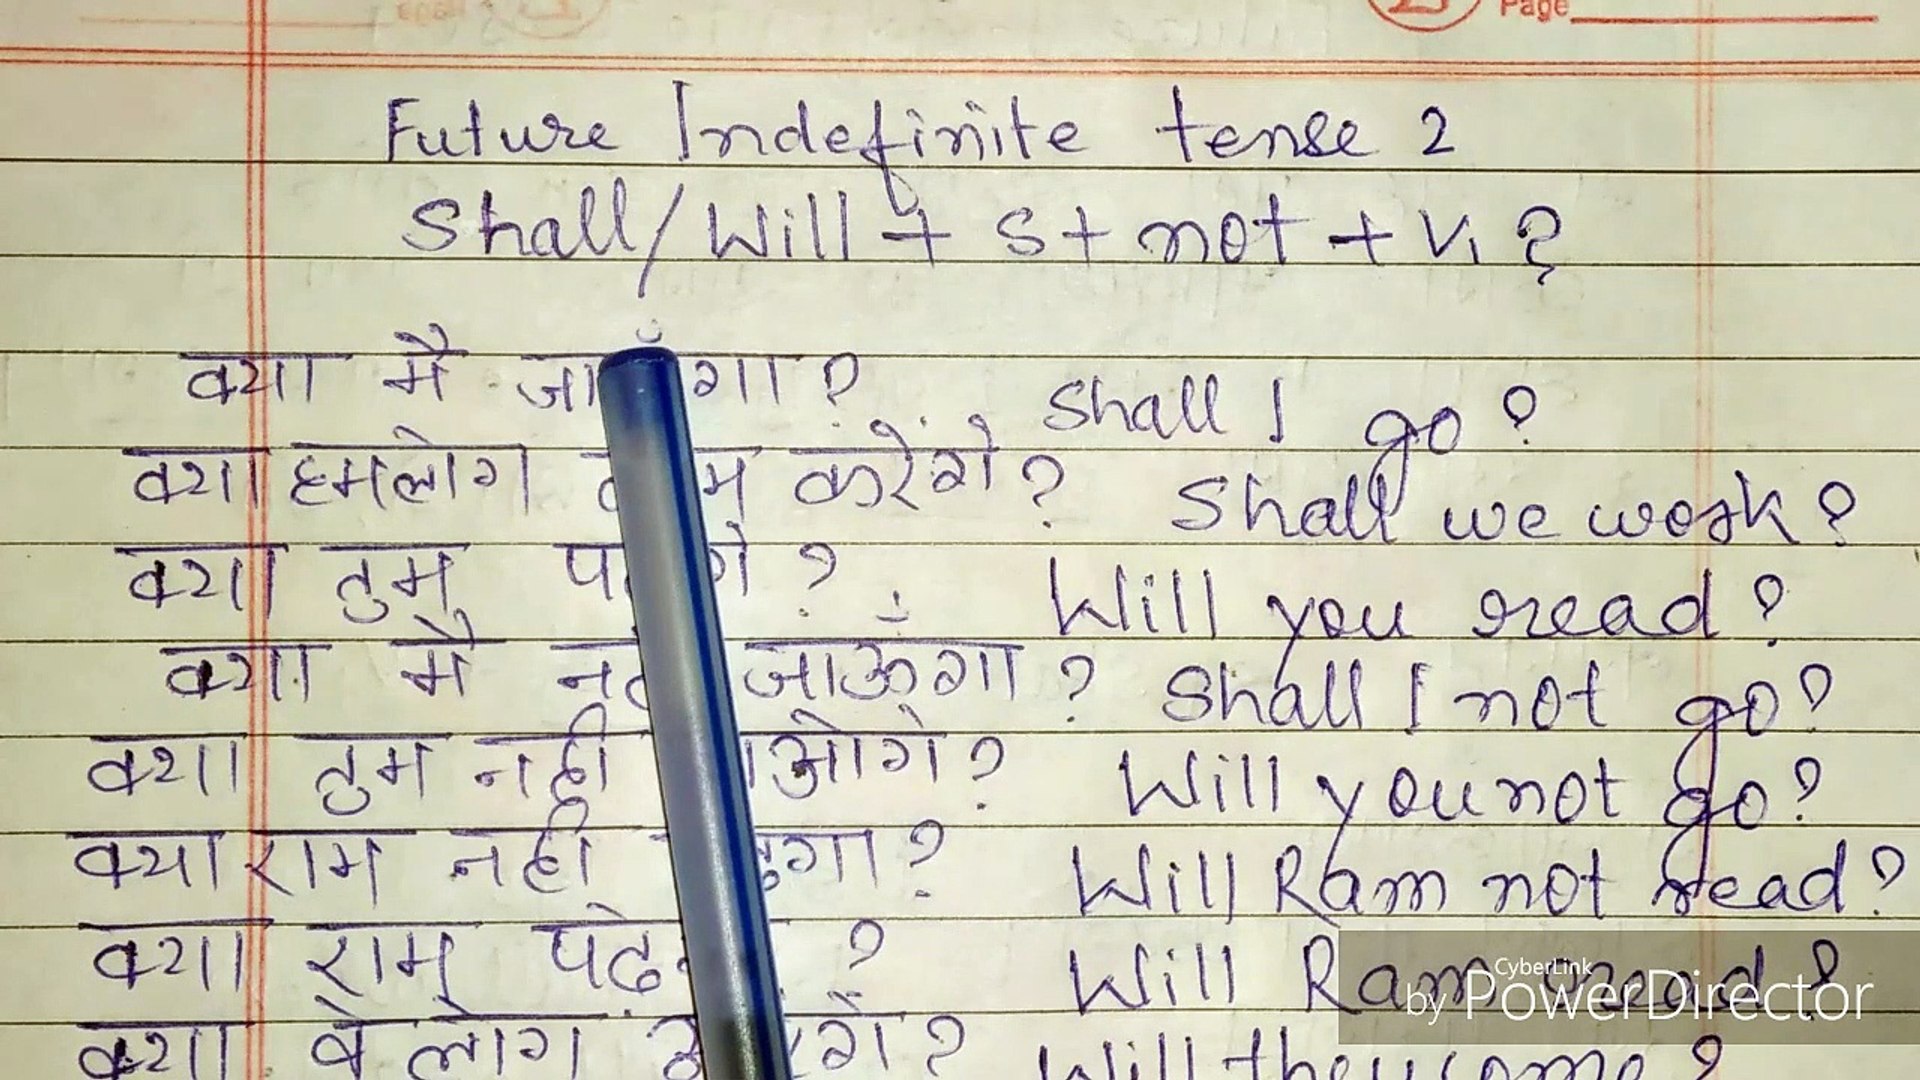 Page
Future Indefinite tense 2
Shall/Will + S + not + V1 ?
क्या मै गा? Shall I go?
क्या हमलोग करेंगे? Shall we work?
क्या तुम ? Will you read?
क्या मै जाऊँगा? Shall I not go?
क्या तुम नही ? Will you not go?
क्या राम नही ? Will Ram not read?
क्या राम ? Will Ram read?
क्या वे लोग ? Will they come?
CyberLink
by PowerDirector